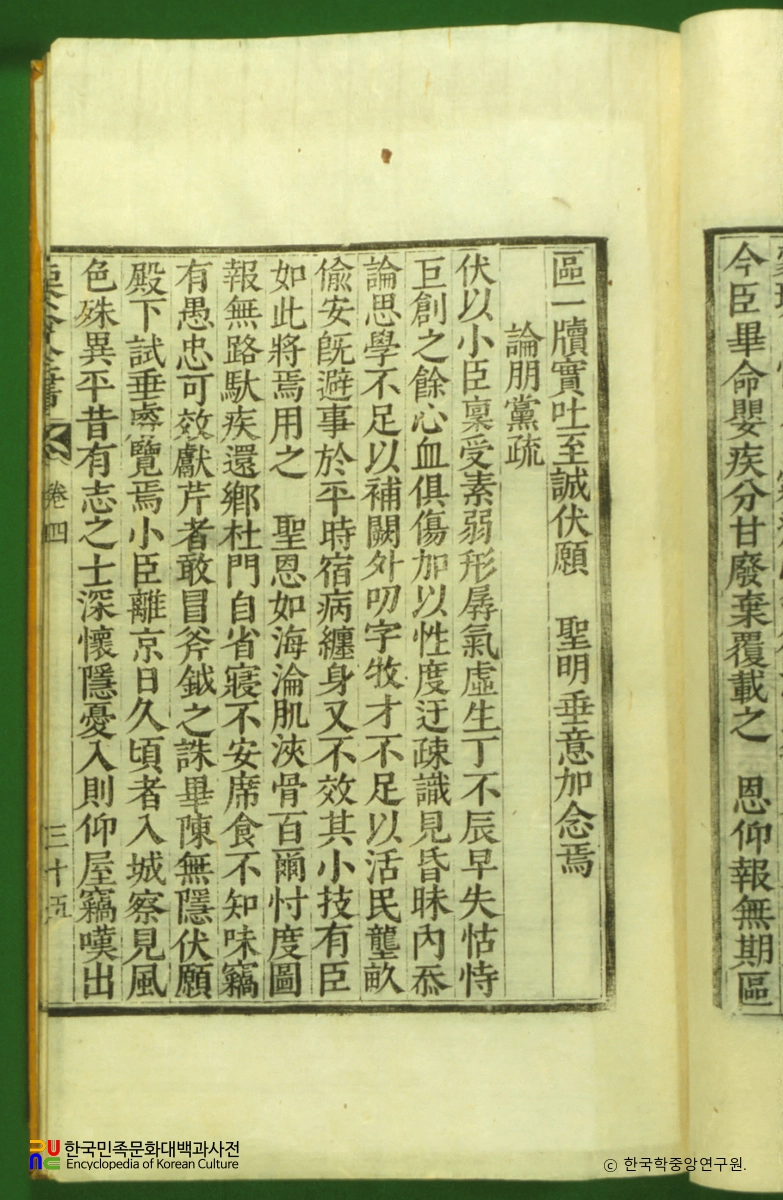 今臣畢命嬰疾分甘廢棄覆載之 恩仰報無期區
區一牘實吐至誠伏願 聖明垂意加念焉
論朋黨疏
伏以小臣稟受素弱形孱氣虛生丁不辰早失怙恃
巨創之餘心血俱傷加以性度迂疎識見昏昧內忝
論思學不足以補闕外叨字牧才不足以活民壟畝
偸安旣避事於平時宿病纏身又不效其小技有臣
如此將焉用之 聖恩如海淪肌浹骨百爾忖度圖
報無路馱疾還鄕杜門自省寢不安席食不知味竊
有愚忠可效獻芹者敢冒斧鉞之誅畢陳無隱伏願
殿下試垂睿覽焉小臣離京日久頃者入城察見風
色殊異平昔有志之士深懷隱憂入則仰屋竊嘆出
卷四
三十五
한국민족문화대백과사전
Encyclopedia of Korean Culture
ⓒ 한국학중앙연구원.